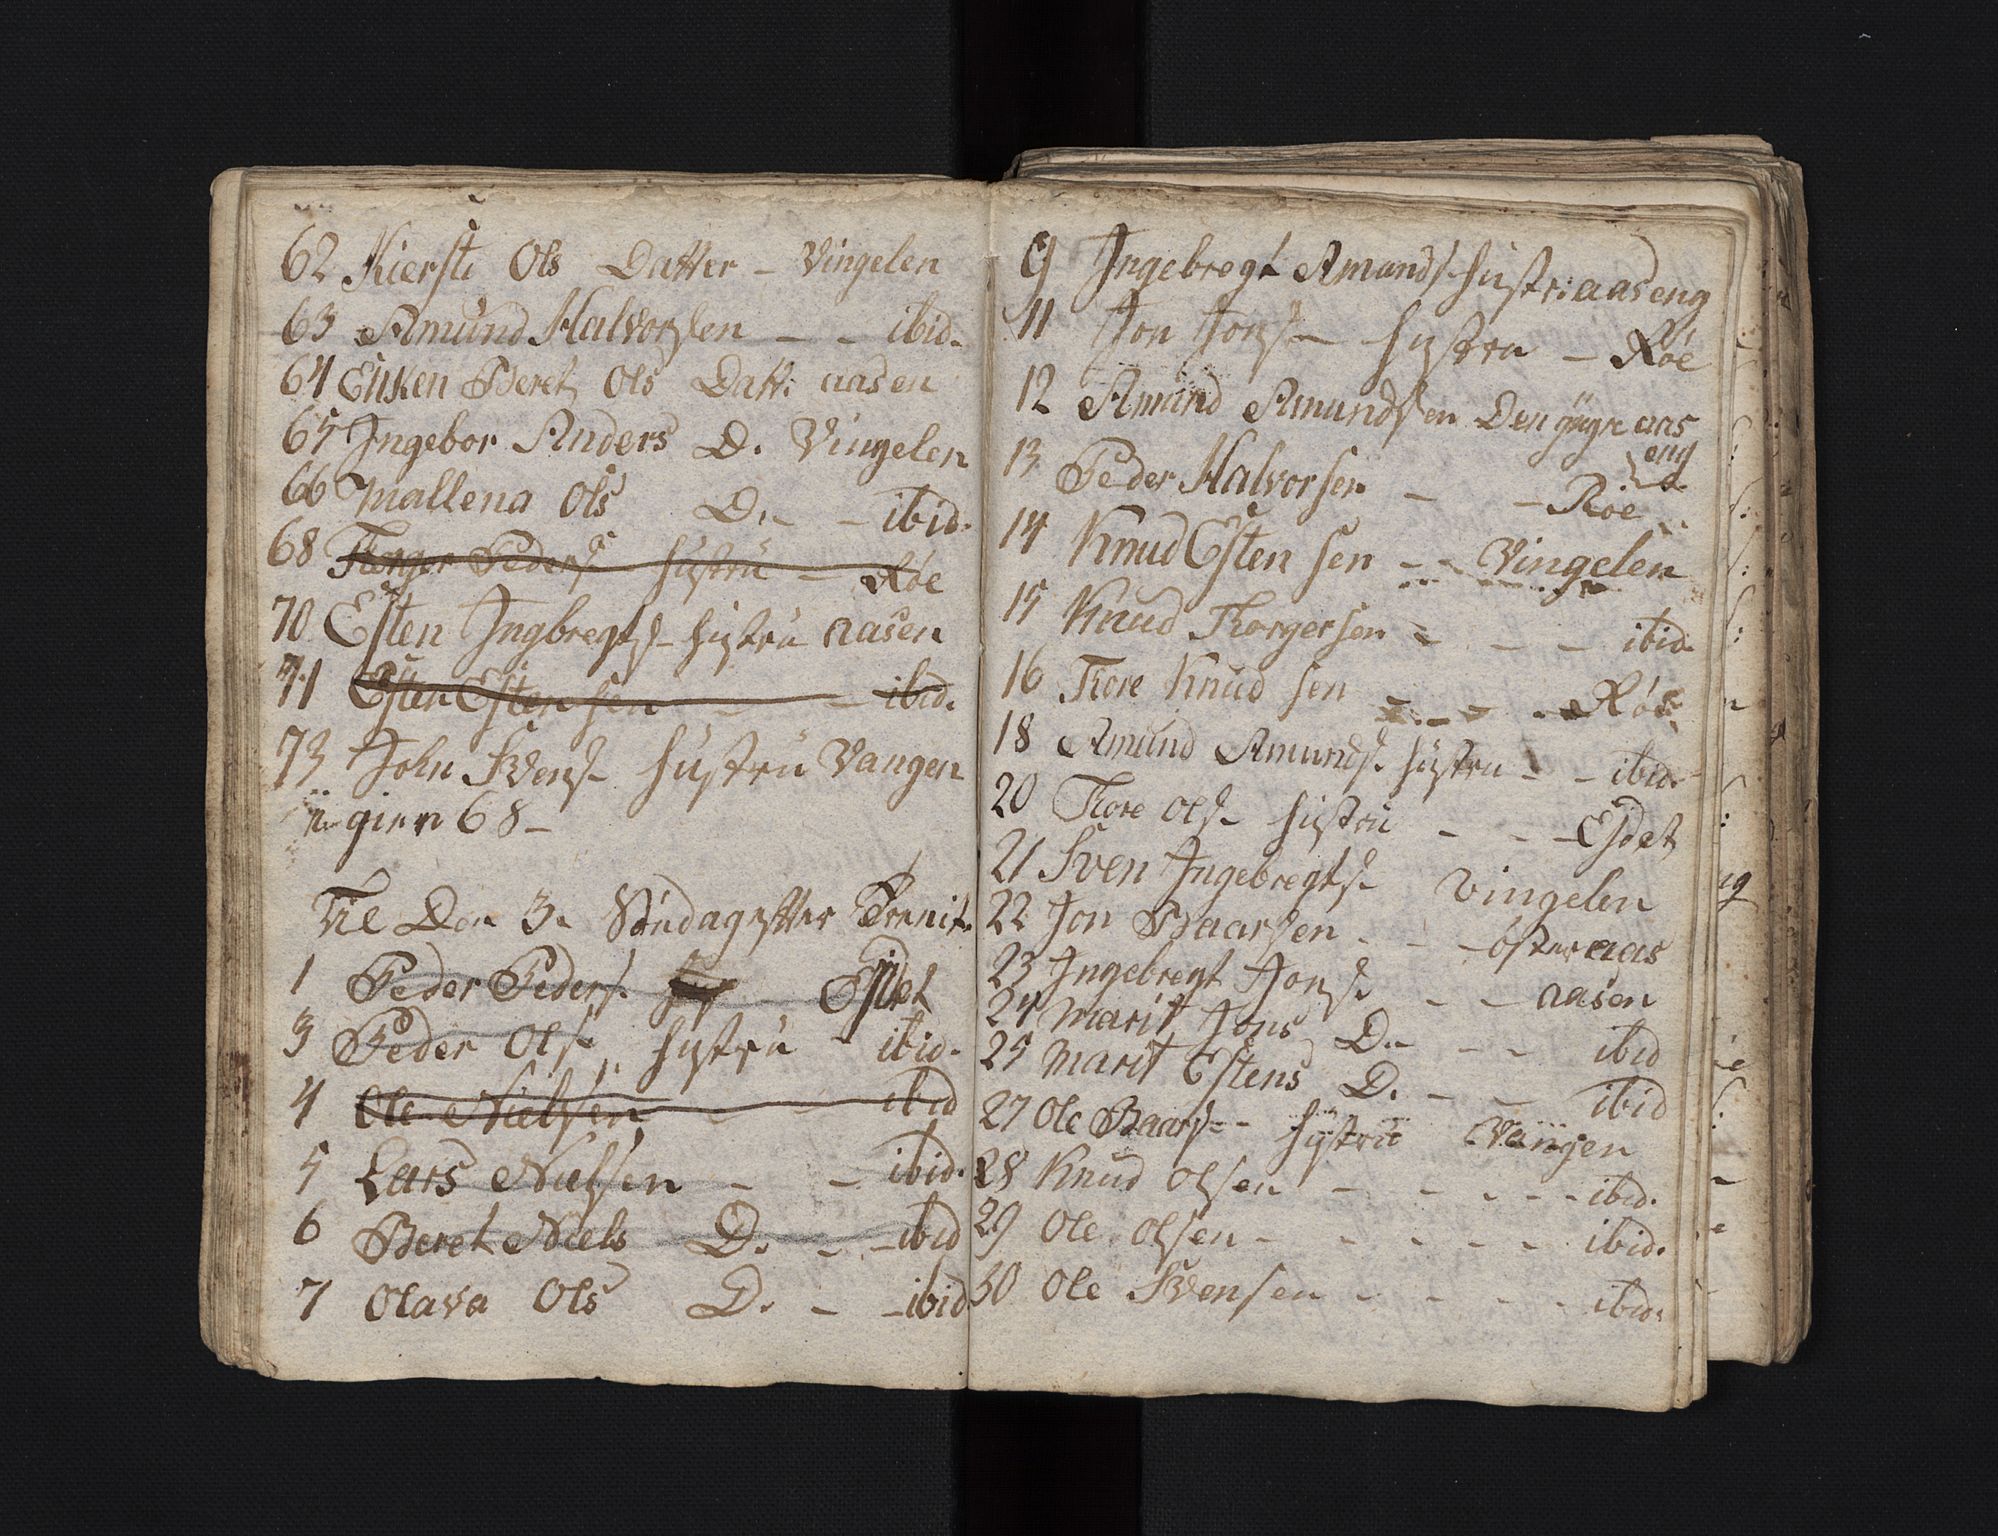 62 Kiersti Ols Datter - Vingelen
63 Amund Halvorsen - - ibid.
64 Enken Beret Ols Datt: aasen
65 Ingebor Anders D. Vingelen
66 Mallena Ols D. - - ibid.
68 Torger Peders. Hustru - Røe
70 Esten Ingbregts. hustru aasen
71 Esten Estensen - - ibid.
73 John Svens. hustru Vangen
gien 68 -
Til Den 3. Søndag efter Trenit.
1 Peder Peders. - ESdet
3 Peder Ols. hustru - ibid.
4 Ole Nielsen - - ibid
5 Lars Nielsen - - ibid.
6 Beret Niels D. - - ibid
7 Olava Ols D. - - ibid
9 Ingebregt Amunds. hustr: aaseng
11 Jon Jons. hustru - Røe
12 Amund Amundsen Den yngre aas
eng
13 Peder Halvorsen - - Røe
14 Knud Estensen - - Vingelen
15 Knud Torgersen - - - ibid.
16 Tore Knudsen - - - Røe
18 Amund Amunds. hustru - - ibid.
20 Tore Ols. hustru - - - ESdet
21 Sven Ingebregts. Vingelen
22 Jon Baarsen - - - østeraas
23 Ingebregt Jons. - - aasen
24 Marit Jons D. - - - ibid
25 Marit Estens D. - - - ibid
27 Ole Baars. - - hustru Vangen
28 Knud Olsen - - - - - ibid.
29 Ole Olsen - - - - - - ibid.
30 Ole Svensen - - - - - ibid.